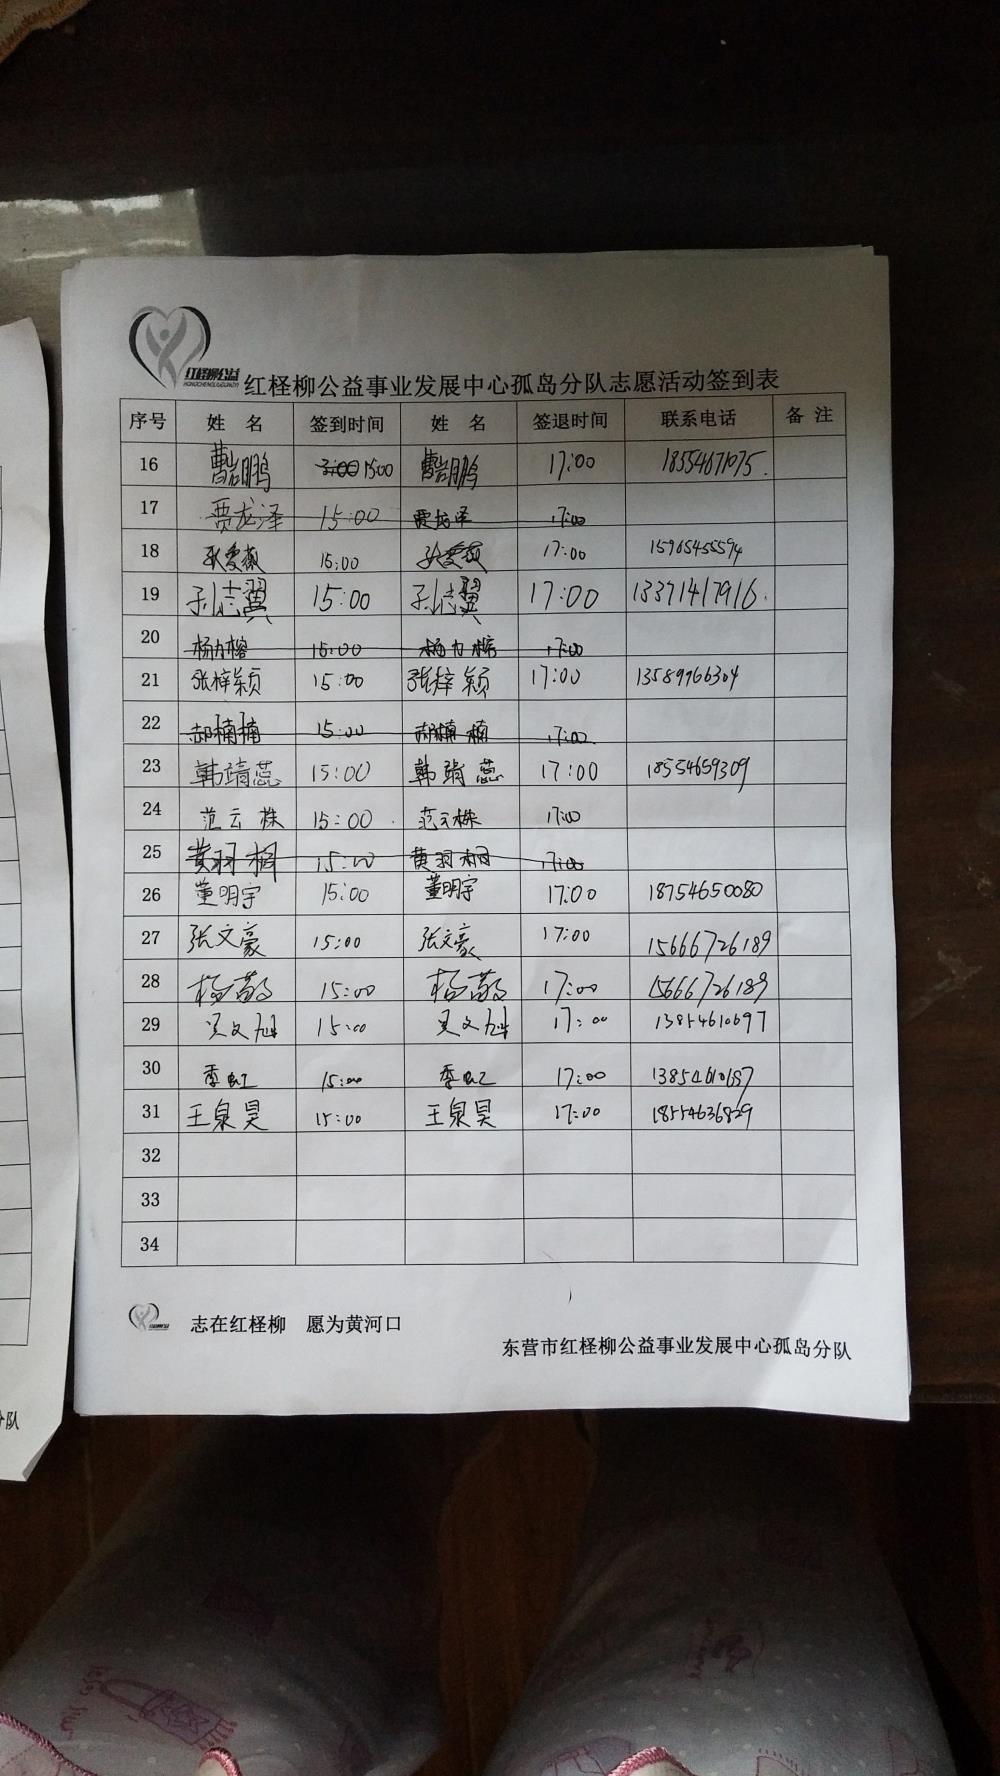 红柽柳公益
HONGCHENGLIUGONGYI
红柽柳公益事业发展中心孤岛分队志愿活动签到表
序号 姓 名 签到时间 姓 名 签退时间 联系电话 备 注
16 曹岩鹏 3:00 15:00 曹岩鹏 17:00 18554671075.
17 贾龙泽 15:00 贾龙泽 17:00
18 耿爱薇 15:00 耿爱薇 17:00 15965455594
19 孙志翼 15:00 孙志翼 17:00 13371417916.
20 杨力榕 15:00 杨力榕 17:00
21 张梓颖 15:00 张梓颖 17:00 13589966304
22 郝楠楠 15:00 郝楠楠 17:00
23 韩靖蕊 15:00 韩靖蕊 17:00 18554659309
24 范云株 15:00 范云株 17:00
25 黄羽桐 15:00 黄羽桐 17:00
26 董明宇 15:00 董明宇 17:00 18754650080
27 张文豪 15:00 张文豪 17:00 15666726189
28 杨 15:00 杨 17:00 15666726189
29 吴文旭 15:00 吴文旭 17:00 13854610697
30 季虹 15:00 季虹 17:00 13854610697
31 王泉昊 15:00 王泉昊 17:00 18554636829
32
33
34
志在红柽柳 愿为黄河口
东营市红柽柳公益事业发展中心孤岛分队
分队